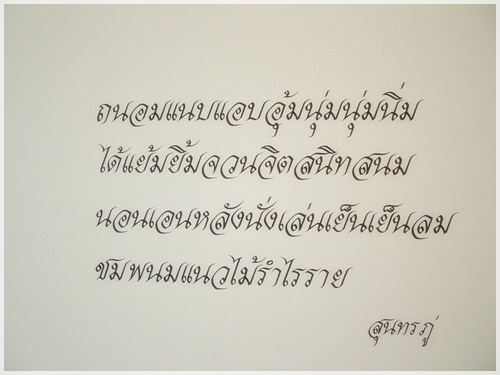 ถนอมแนบแอบอุ้มนุ่มนุ่มนิ่ม
ได้แย้มยิ้มจวนจิตสนิทสนม
นอนเอนหลังนั่งเล่นเย็นเย็นลม
ชมพนมแนวไม้รำไรราย
สุนทรภู่